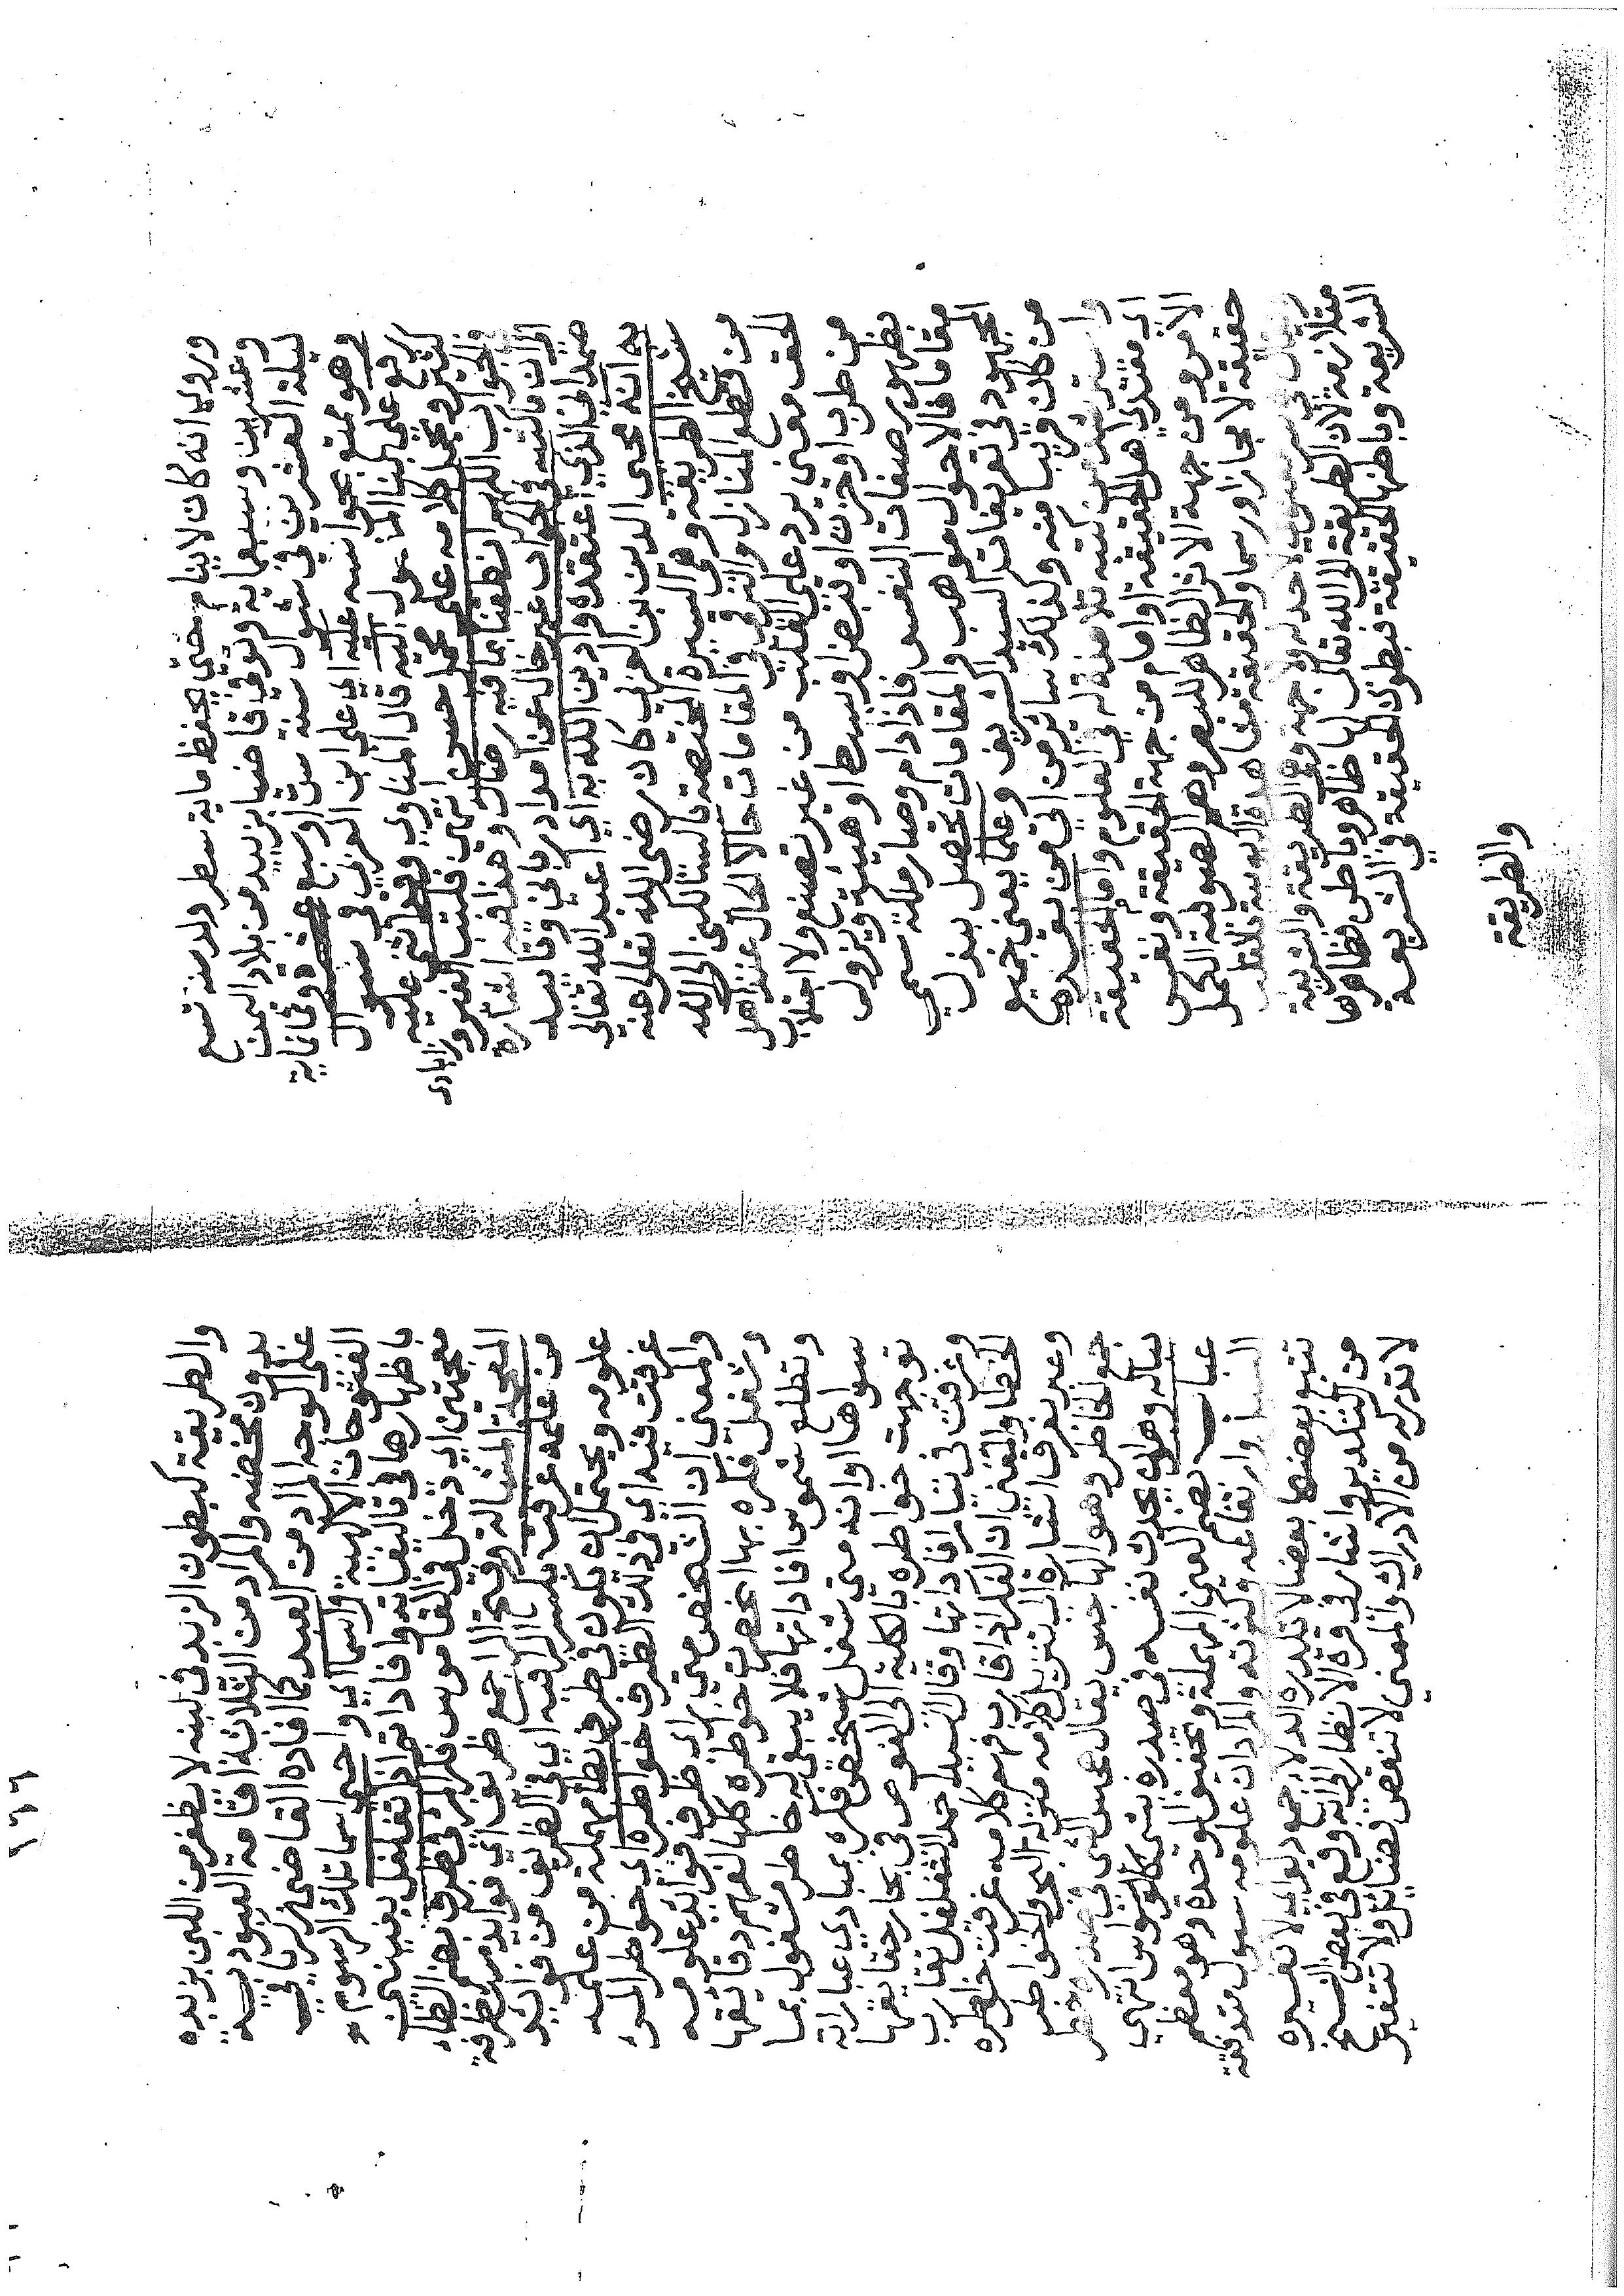 وروي انه كان لا ينام حتى يحفظ ماية سطر ولد سنه تسع
وعشرين وسبعماية وتوفي قاضيا بزبيد من بلاد اليمن
ليلة العشرين في شوال سنة ست او سبع عشرة وثمانماية
وهو ممتع بحواسه عليه اي على ابن العربي في سوال
رفع على لبنا المفعول اليه قال المناوي وقد اثنى عليه
كثير وتحمل كلامه على محمل حسن انتهى فكتب الفيروزابادي
في الجواب اللهم انطقنا بما فيه رضاك وهذا فيه اشارة
الى ان ما كتبه في الجواب غير خال عن امداد رباني وتاييد
صمداني الذي اعتقده وادين الله به اي اعبد الله تعالى
به انه محيي الدين بن العربي كان رضي الله تعالى عنه
شيخ الطريقة وهي السيرة المختصة بالسالكين الى الله
من قطع المنازل والترقي في المقامات حالا الحال عند اهل
الحق معنى يرد على القلب من غير تصنع ولا اجتلاب
من طرب او حزن او قبض او بسط او هيئة ويزول
بظهور صفات النفس فاذا دام وصار ملكة سمي
مقاما فالاحوال مواهب والمقامات تحصل ببذل
المجهود في تعريفات السيد الشريف وعلما يعني جميع
من كان قريبا منه وكذلك سائر من اتى من بعدهم
الى مقتدي اهل الحقيقة اوامام من جهة الحقيقة ونفس
الامر ومن جهة الاثر الظاهر للبصر وهم الصوفية الكمل
حقيقة لا مجازا ورسما والحقيقة مشاهدة الربوبية بالقلب
متلازمة لان الطريقة الى الله تعالى لها ظاهر وباطن فظاهرها
الشريعة وباطنها الحقيقة فبطون الحقيقة في الشريعة
والطريقة
١٦٦
والطريقة كبطون الزبد في لبنه لا يظفر من اللبن بزبده
بدون مخضه والمراد من الثلاثة اقامة العبودية
على الوجه المراد من العبد كما افاده القاضي زكريا في
الفتوحات الالهية واسما اي واحيى اسما تلك الرسوم
باظهارها في تاليفاته وافاداته اذا تغلغل بغينين
معجمتين اي دخل في القاموس فكر المرء في طرف بفتح الطاء
المهملة وفتح الراء جمع طريق اي فوايد مستظرفة
من علمه غرقت بكسر الراء فيه اي في الطرف من فوايد
علومه ويحتمل ان يكون في طرف بطا مهملة من علمه
غرقت فيه اي في ذلك الطرف خواطره اي خواطر المرء
والمعنى ان الشخص متى راى طرف فوايد علومه
وشغل فكره بها انحصرت خواطره كلها لفهم دقائقها
وتطلع شموس افاداتها فلا يبقى له خاطر مشغول بما
سواها او انه متى شغل شخص فكره بمبادي عباراته
توجهت خواطره بالكلية الى الغوص في بحار حقايقها
وغرقت في تيار افاداتها وقال السيد احمد التغلغل تقارب
الخطا والمعنى ان الفكر اذا قارب فهم كلامه غرقت خواطره
وعبر بغرق اشارة الى تنزيل كلامه منزلة البحر والخواطر
جمع خاطر وهو الهاجس يقال هجس الشي في صدره خطر
بباله وهو ان يحدث نفسه في صدره بشي كالوسواس انتهى
عباب بضم العين المهملة وتخفيف الموحدة وهو معظم
السيل وارتفاعه وكثرته والمراد ان علومه سيول متدفقة
تتبع بعضها بعضا لا تكدره الدلا جمع دلو اي لا تغيره
من التكدير واشار في قرة الانظار الى انه وقع في بعض النسخ
لا تدركه من الادراك والمعنى لا تنقص فضائل ولا تتغير